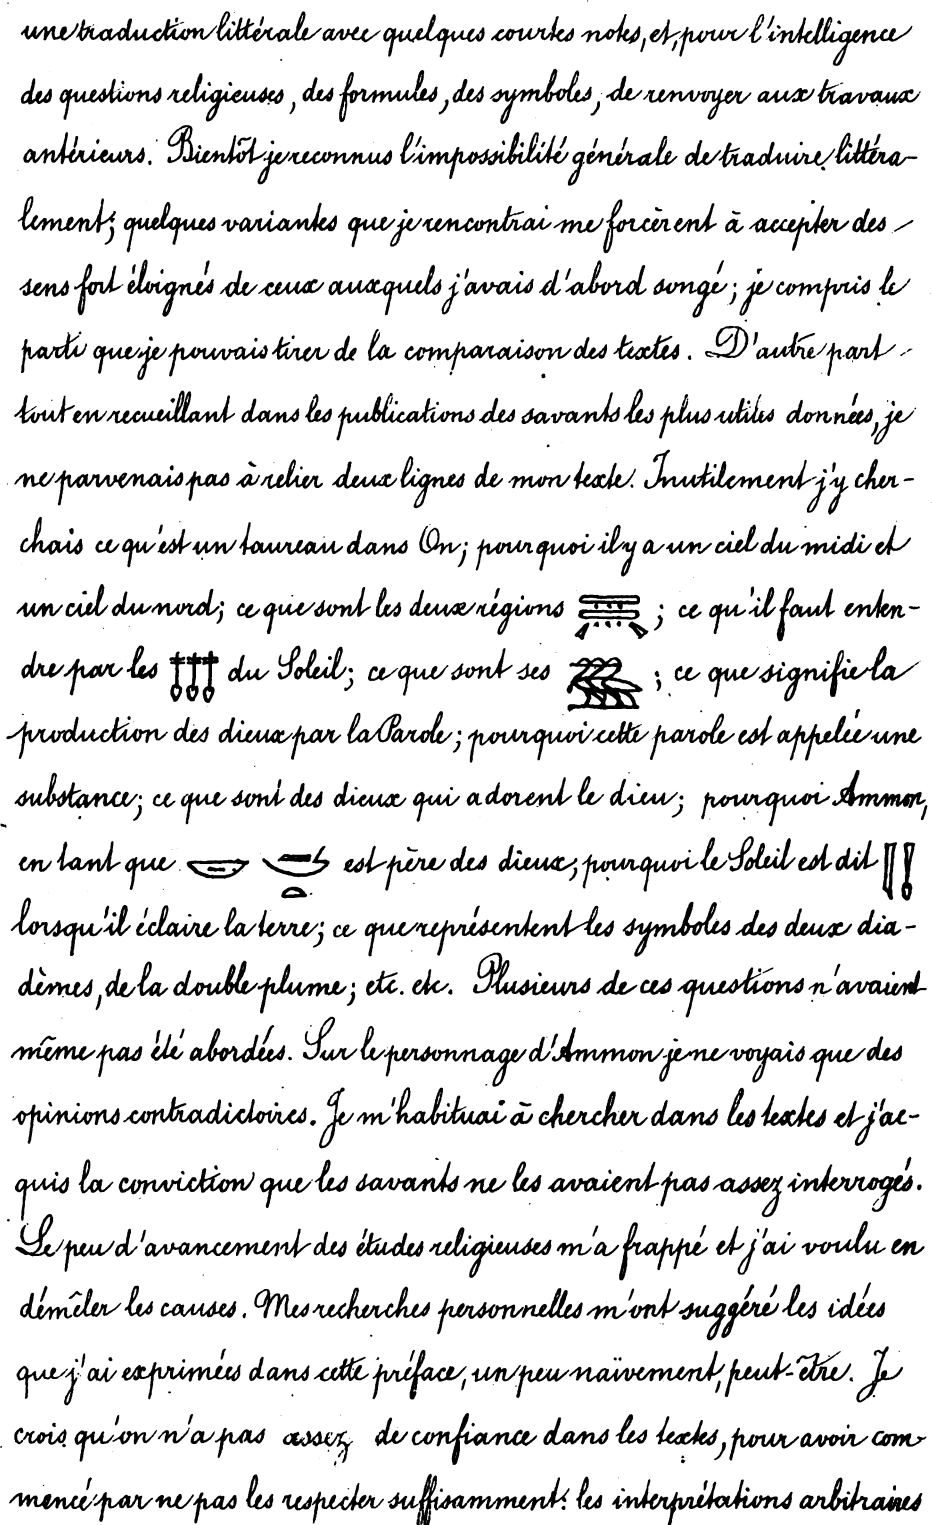 une traduction littérale avec quelques courtes notes, et, pour l'intelligence
des questions religieuses, des formules, des symboles, de renvoyer aux travaux
antérieurs. Bientôt je reconnus l'impossibilité générale de traduire littéra-
lement; quelques variantes que je rencontrai me forcèrent à accepter des
sens fort éloignés de ceux auxquels j'avais d'abord songé; je compris le
parti que je pouvais tirer de la comparaison des textes. D'autre part
tout en recueillant dans les publications des savants les plus utiles données, je
ne parvenais pas à relier deux lignes de mon texte. Inutilement j'y cher-
chais ce qu'est un taureau dans On; pourquoi il y a un ciel du midi et
un ciel du nord; ce que sont les deux régions ; ce qu'il faut enten-
dre par les 𓄤𓄤𓄤 du Soleil; ce que sont ses ; ce que signifie la
production des dieux par la Parole; pourquoi cette parole est appelée une
substance; ce que sont des dieux qui adorent le dieu; pourquoi Ammon,
en tant que est père des dieux; pourquoi le Soleil est dit
lorsqu'il éclaire la terre; ce que représentent les symboles des deux dia-
dèmes, de la double plume; etc. etc. Plusieurs de ces questions n'avaient
même pas été abordées. Sur le personnage d'Ammon je ne voyais que des
opinions contradictoires. Je m'habituai à chercher dans les textes et j'ac-
quis la conviction que les savants ne les avaient pas assez interrogés.
Le peu d'avancement des études religieuses m'a frappé et j'ai voulu en
démêler les causes. Mes recherches personnelles m'ont suggéré les idées
que j'ai exprimées dans cette préface, un peu naïvement, peut-être. Je
crois qu'on n'a pas assez de confiance dans les textes, pour avoir com-
mencé par ne pas les respecter suffisamment: les interprétations arbitraires